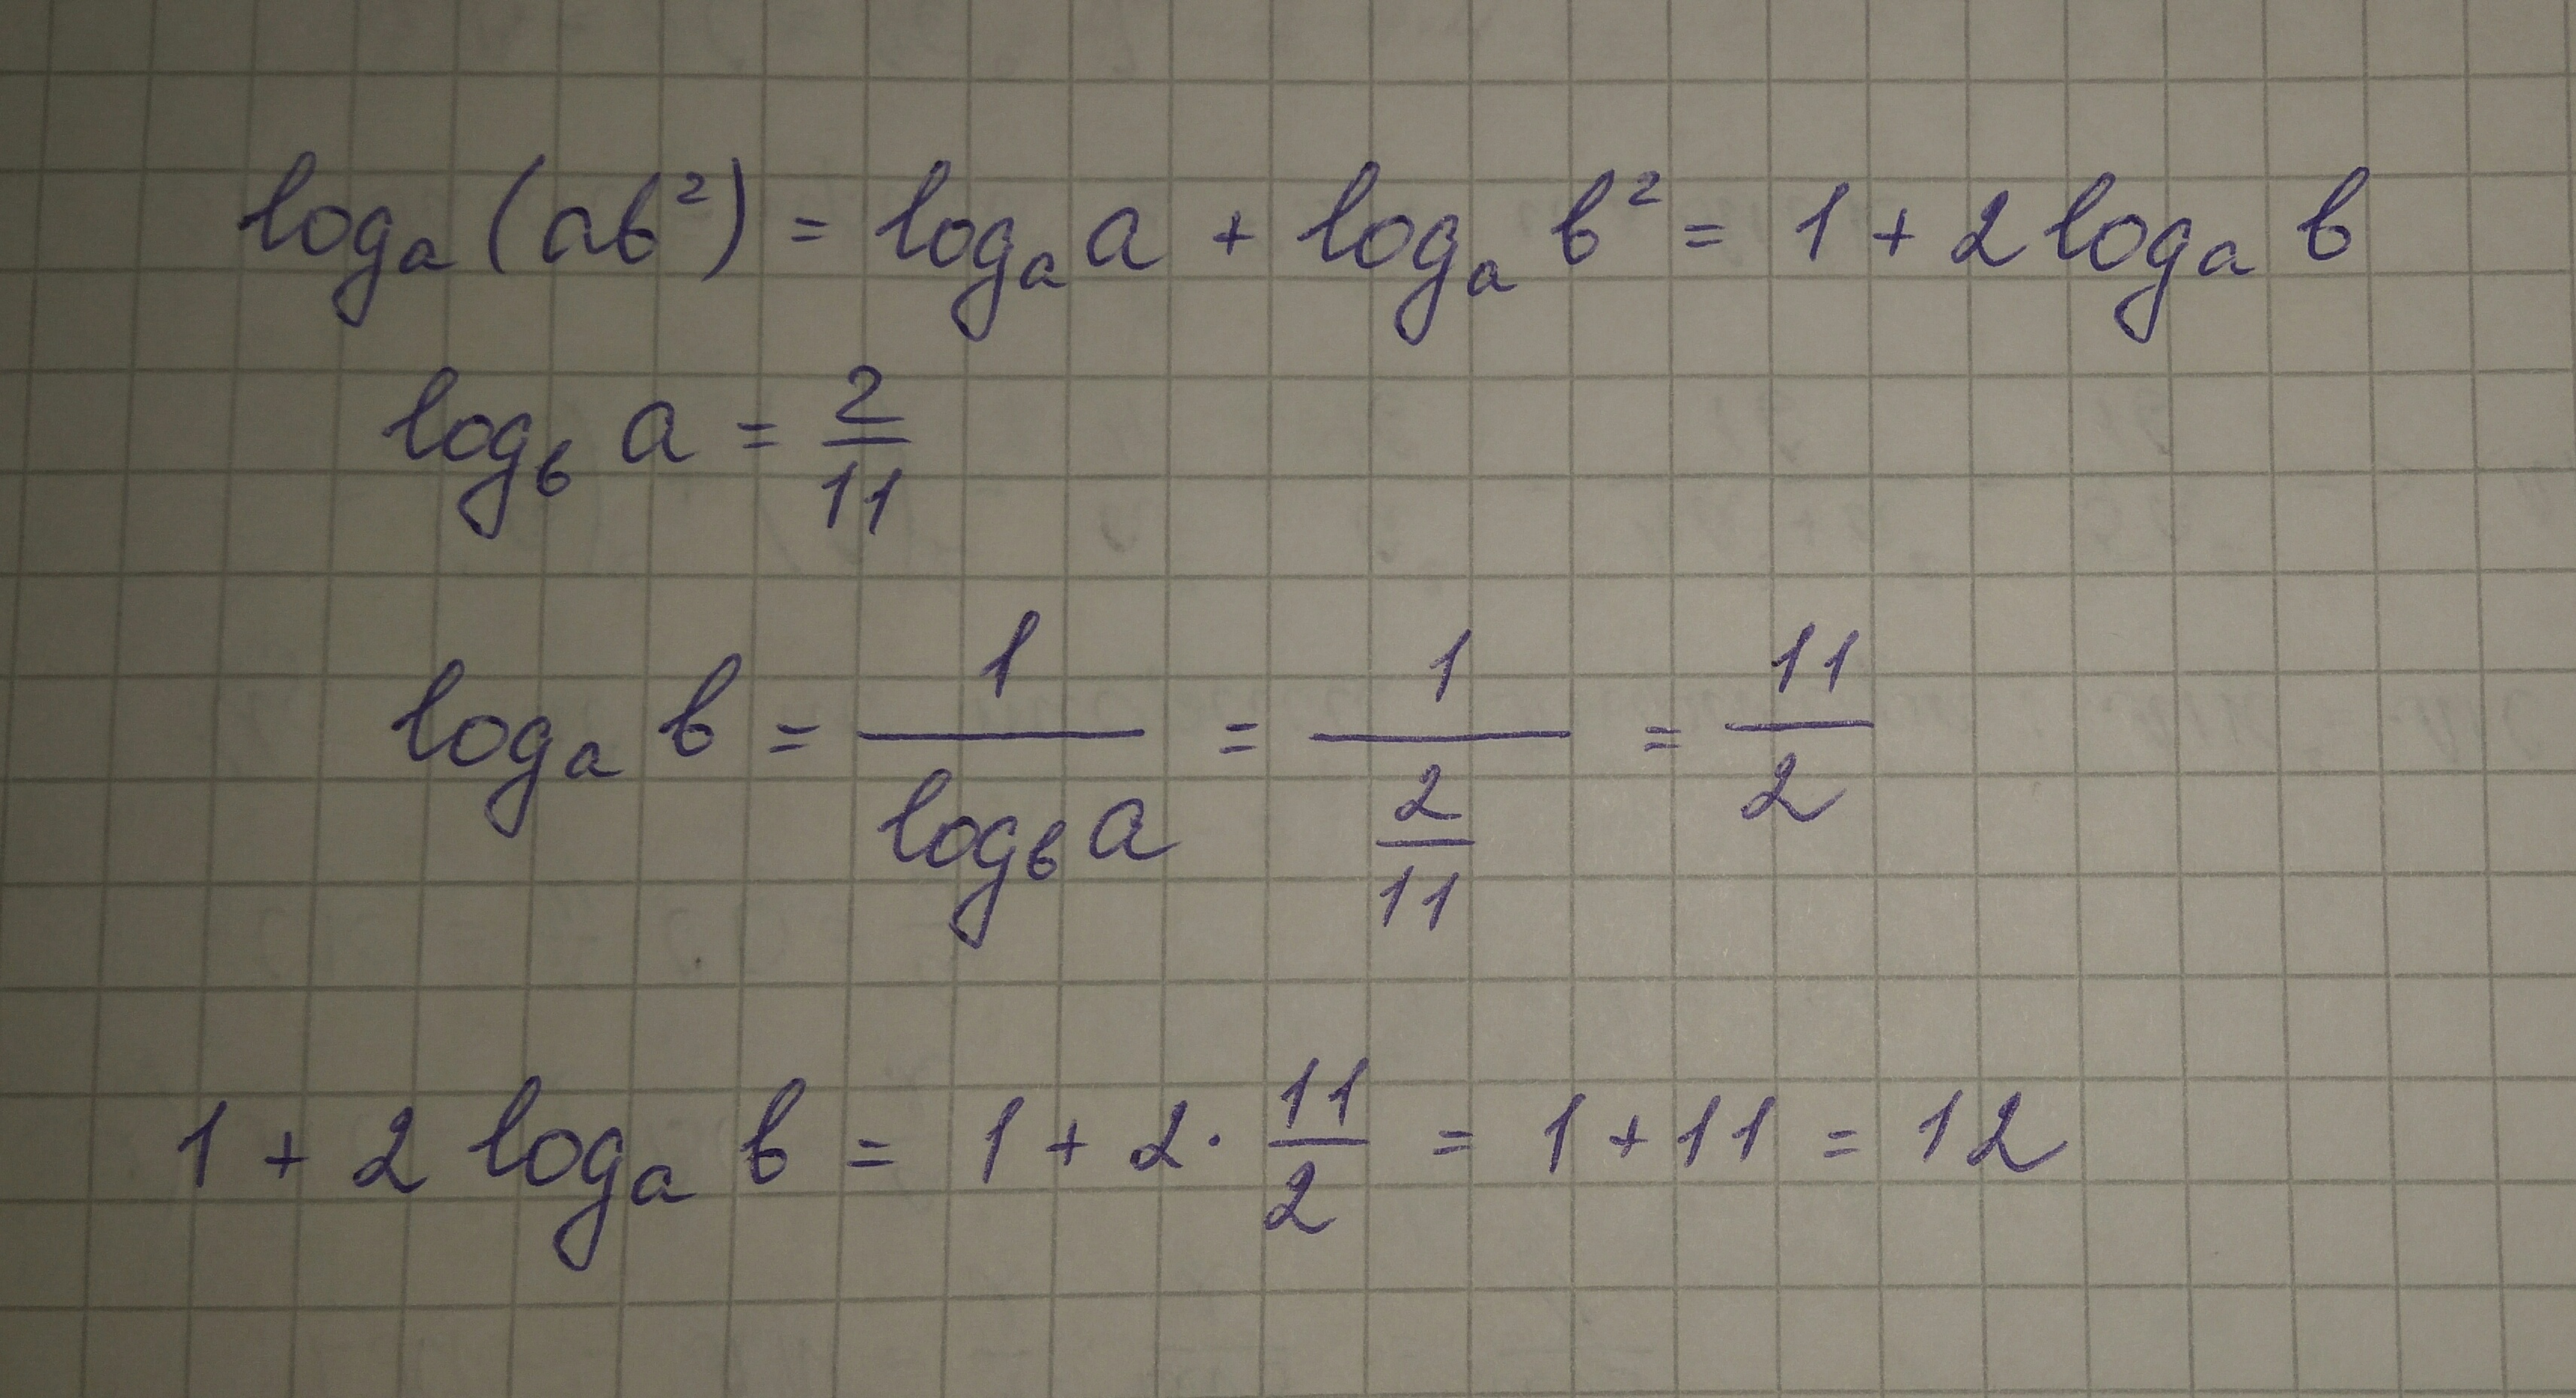 logₐ (ab²) = logₐ a + logₐ b² = 1 + 2 logₐ b
log_b a = 2/11
logₐ b = 1/(log_b a) = 1/(2/11) = 11/2
1 + 2 logₐ b = 1 + 2 · 11/2 = 1 + 11 = 12